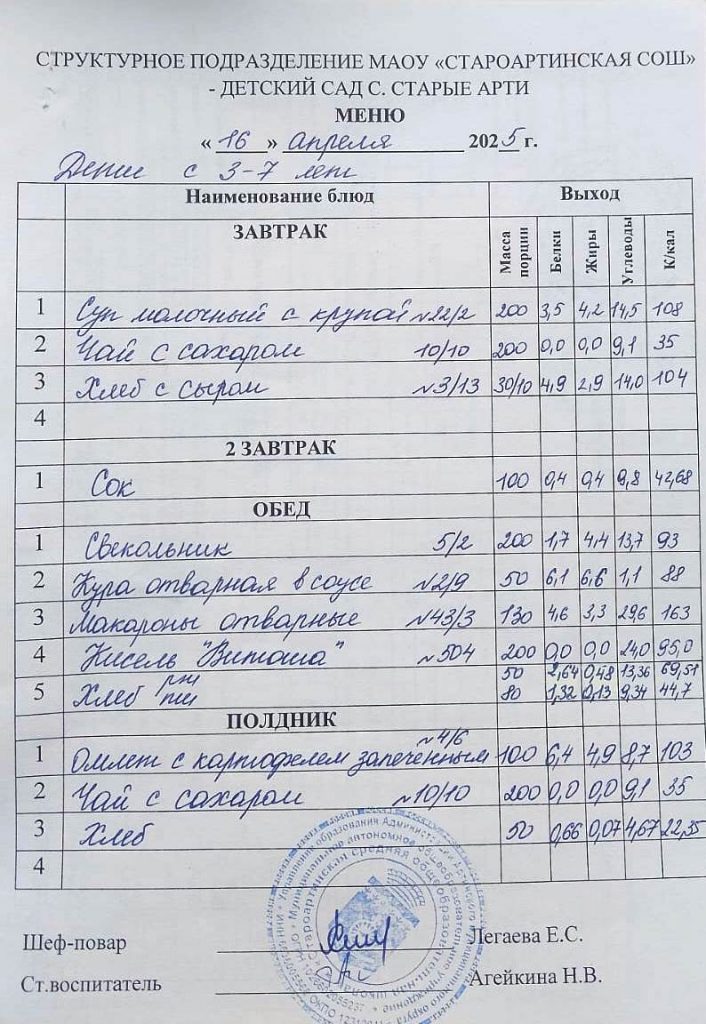 СТРУКТУРНОЕ ПОДРАЗДЕЛЕНИЕ МАОУ «СТАРОАРТИНСКАЯ СОШ»
- ДЕТСКИЙ САД С. СТАРЫЕ АРТИ
МЕНЮ
« 16 » апреля 2025 г.
Дети с 3-7 лет
Наименование блюд Выход
ЗАВТРАК Масса порции Белки Жиры Углеводы К/кал
1 Суп молочный с крупой №22/2 200 3,5 4,2 14,5 108
2 Чай с сахаром 10/10 200 0,0 0,0 9,1 35
3 Хлеб с сыром №3/13 30/10 4,9 2,9 14,0 104
4
2 ЗАВТРАК
1 Сок 100 0,4 0,4 9,8 42,68
ОБЕД
1 Свекольник 5/2 200 1,7 4,4 13,7 93
2 Кура отварная в соусе №2/9 50 6,1 6,6 1,1 88
3 Макароны отварные №43/3 130 4,6 3,3 29,6 163
4 Кисель "Витоша" №504 200 0,0 0,0 24,0 95,0
5 Хлеб рж 50 2,64 0,48 13,36 69,51
пш 80 1,32 0,13 9,34 44,7
ПОЛДНИК
1 Омлет с картофелем запеченным №4/6 100 6,4 4,9 8,7 103
2 Чай с сахаром №10/10 200 0,0 0,0 9,1 35
3 Хлеб 50 0,66 0,07 4,67 22,35
4
Шеф-повар Легаева Е.С.
Ст.воспитатель Агейкина Н.В.